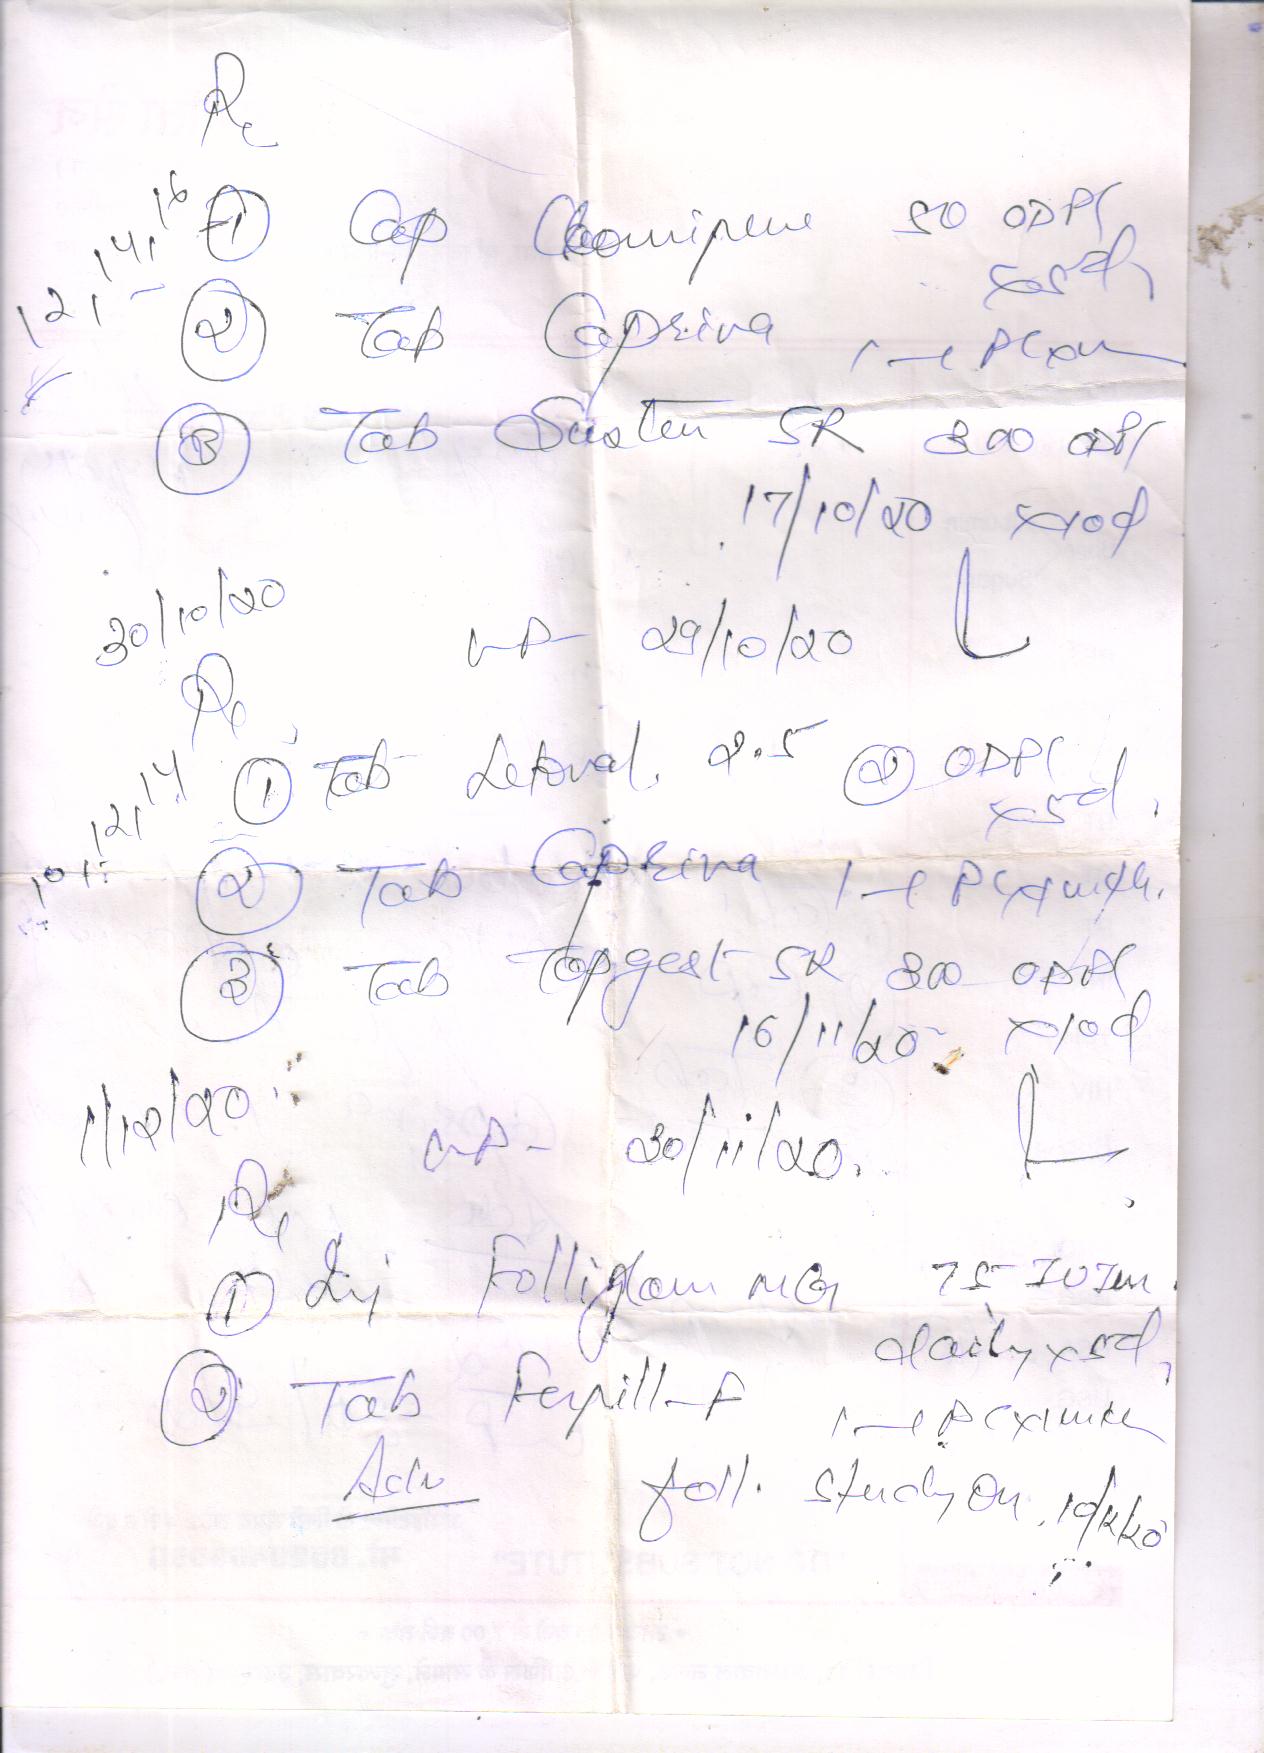 Rx
12, 14, 16
① Cap Clomipure 50 OD PC
x 5d
② Tab Caprina 1-1 PC x m
③ Tab Susten SR 300 OD PC
17/10/20 x 10d
30/10/20 LMP- 29/10/20
Rx
10, 12, 14
① Tab Letoval 2.5 ② OD PC
x 5d
② Tab Caprina 1-1 PC x mth.
③ Tab Topgest SR 300 OD PC
16/11/20 x 10d
1/12/20
LMP- 30/11/20.
Rx
① Inj Folligram MG 75 IU Im.
daily x 5d
② Tab Ferpill-F 1-1 PC x 1 mth
Adv foll. study on 10/12/20